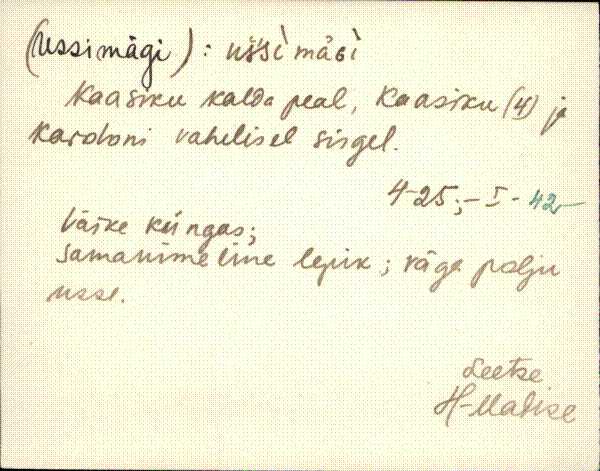 (Ussimägi): uśśi mäGi
Kaasiku kalda peal, Kaasiku (4) ja
Kardoni vahelisel sirgel.
4-25;- I - 42
Väike küngas;
samanimeline lepik; väga palju
usse.
Leetse
H-Madise